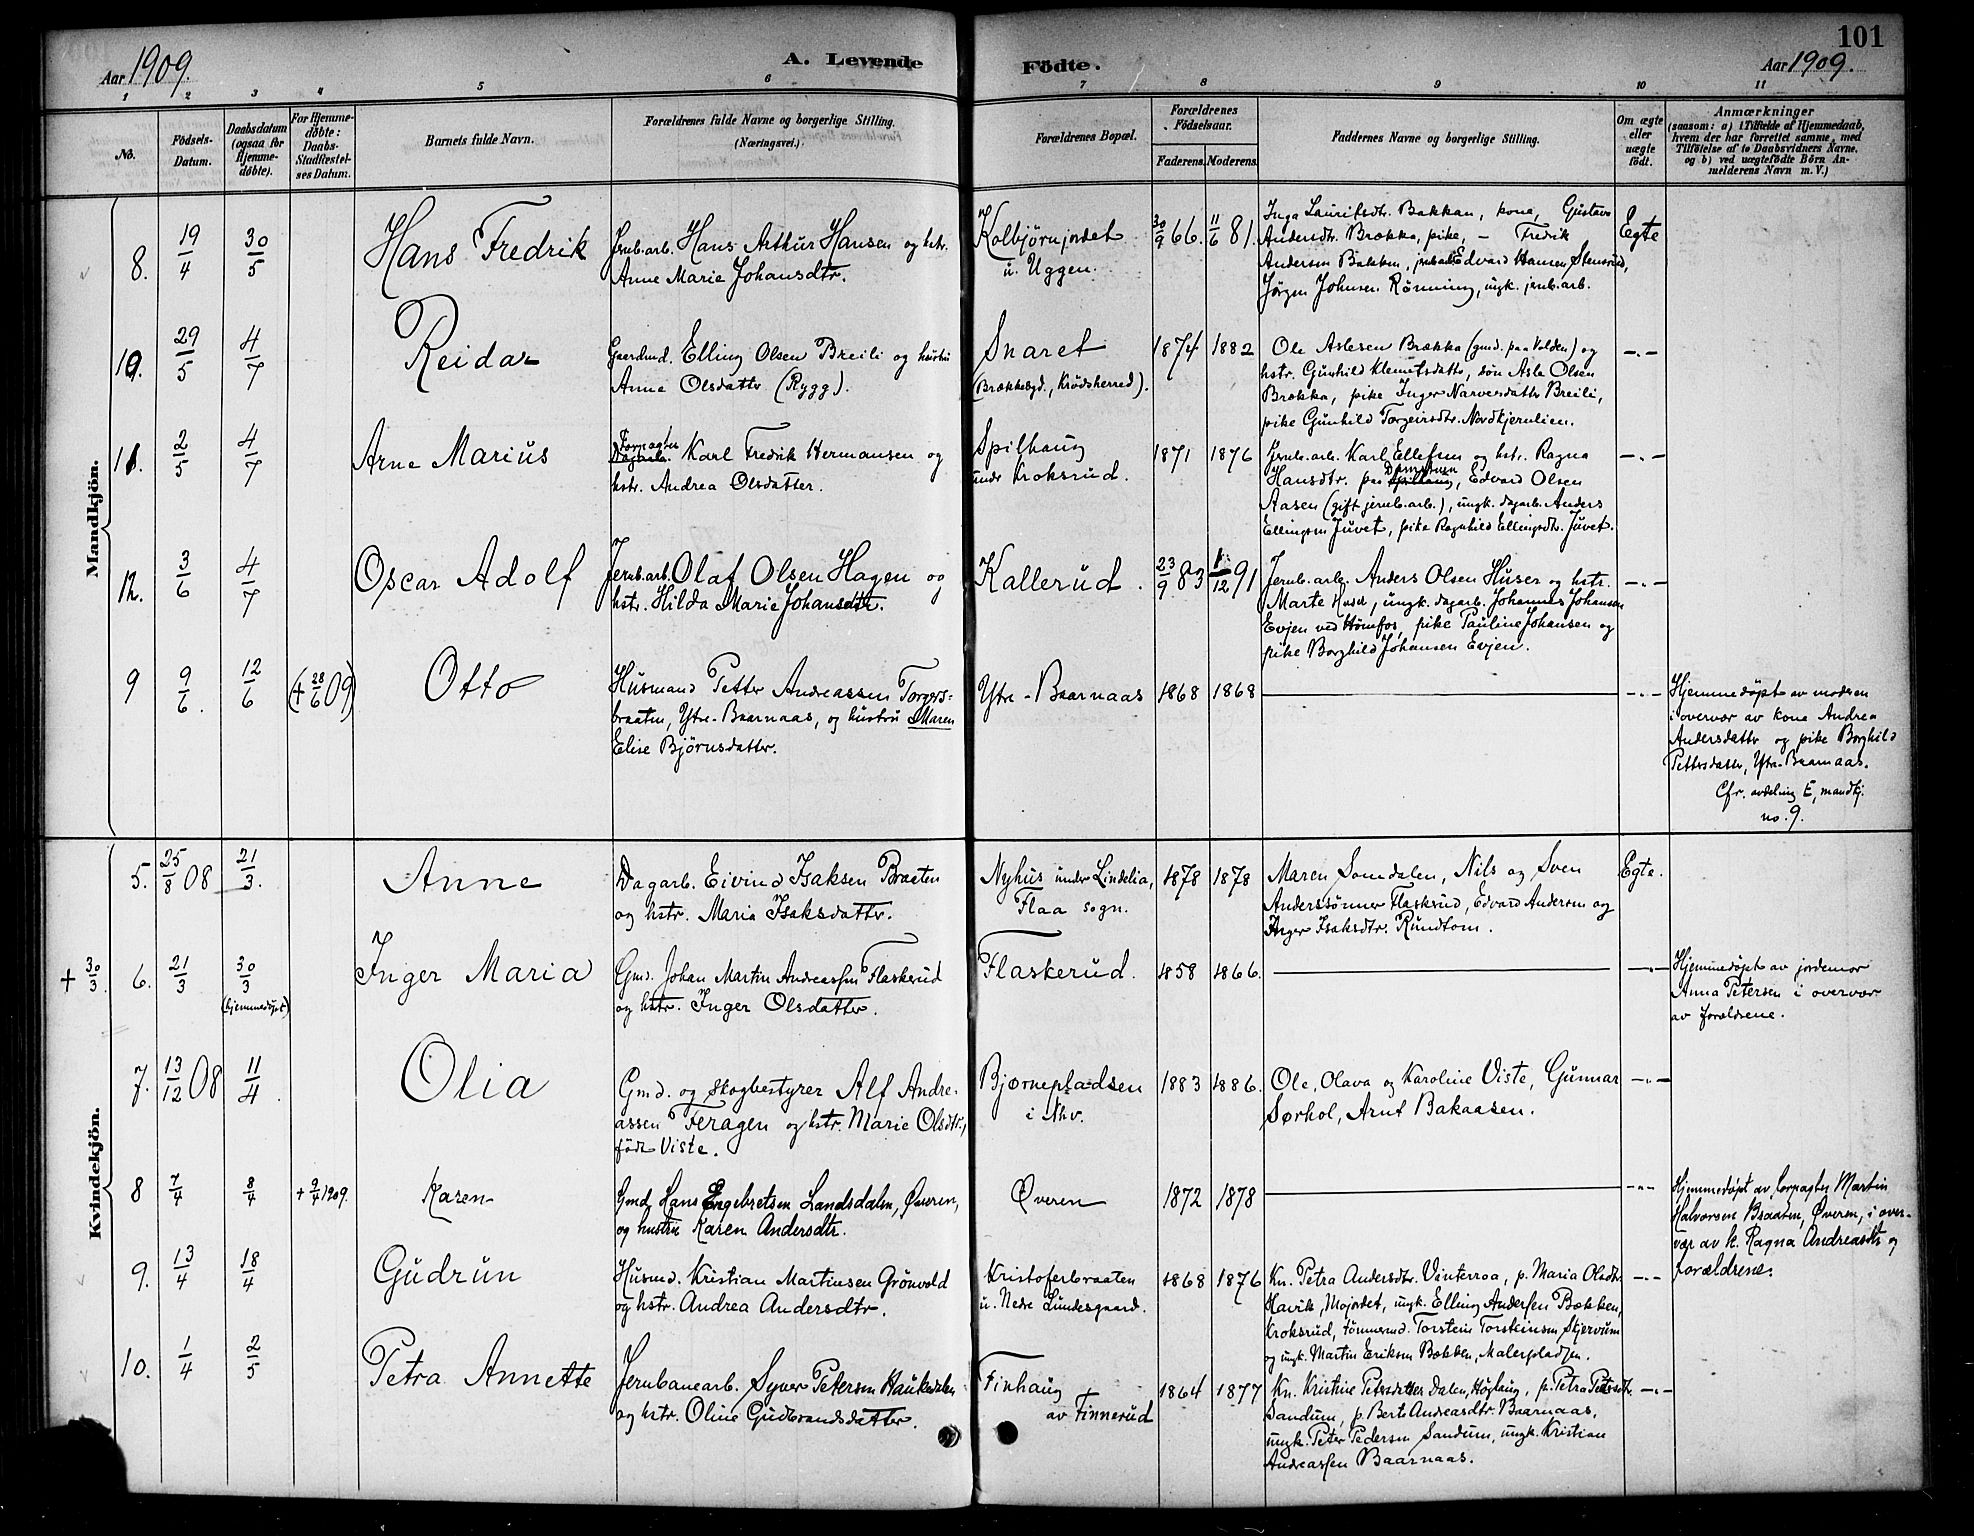 101
Aar 1909.
A. Levende Födte.
Aar 1909.
1 2 3 4 5 6 7 8 9 10 11
No.
Födsels-
Datum.
Daabsdatum
(ogsaa for
Hjemme-
døbte).
For Hjemme-
døbte:
Daabs-
Stadfæstel-
ses Datum.
Barnets fulde Navn.
Forældrenes fulde Navne og borgerlige Stilling.
(Næringsvei.)
Forældrenes Bopæl.
Forældrenes
Fødselsaar.
Faderens. Moderens.
Faddernes Navne og borgerlige Stilling.
Om ægte
eller
uægte
født.
Anmærkninger
(saasom: a) i Tilfælde af Hjemmedaab,
hvem der har forrettet samme, med
Tilföielse af to Daabsvidners Navne,
og b) ved uægtefödte Börn An-
melderens Navn m. V.)
Mandkjön.
8. 19/4 30/5 Hans Fredrik
Jernb.arb. Hans Arthur Hansen og hstr.
Anne Marie Johansdtr.
Kolbjörnjordet
u. Uggen.
30/9 66. 11/6 81.
Inga Lauritsdtr. Bakken, kone, Gustava
Andersdtr. Brækka, pike, – Fredik
Andersen Bakken, jernb.arb. Edvard Hansen Stensrud,
Jørgen Johnsen Rönning, ungk. jernb.arb.
Egte
10. 29/5 4/7 Reidar
Gaardmd. Elling Olsen Breili og hustru
Anne Olsdatter (Rygg).
Snaret
(Brækkeegd., Krödsherred).
1874 1882
Ole Aslesen Brækka (gmd. paa Volden) og
hstr. Gunhild Klemetsdatter, sön Asle Olsen
Brækka, pike Inger Narvesdatter Breili,
pike Gunhild Torgeirsdtr. Nordkjernlien.
–"–
11. 2/5 4/7 Arne Marius
Forpagter
Dagarb. Karl Fredrik Hermansen og
hstr. Andrea Olsdatter.
Spilhaug
under Kroksrud.
1871 1876
Jernb.arb. Karl Ellefsen og hstr. Ragna
Hansdtr. paa Spilhaug, Edvard Olsen
Aasen (gift jernb.arb.), ungk. dagarb. Anders
Ellingsen Juvet, pike Ragnhild Ellingsdtr. Juvet.
–"–
12. 3/6 4/7 Oscar Adolf
Jernb.arb. Olaf Olsen Hagen og
hstr. Hilda Marie Johansdtr.
Kallerud.
23/9 83 1/12 91
Jernb.arb. Anders Olsen Huser og hstr.
Marte Huser, ungk. dagarb. Johannes Johansen
Evjen ved Hönefos, pike Pauline Johansen og
pike Borghild Johansen Evjen.
–"–
9 9/6. 12/6 (+ 28/6 09) Otto
Husmand Petter Andreassen Torgers-
braaten, Ytre-Baarnaas, og hustru Maren
Elise Björnsdatter.
Ytre-Baarnaas 1868 1868
–"–
Hjemmedøpt av moderen
i overvær av kone Andrea
Andersdatter og pike Borghild
Pettersdatter, Ytre-Baarnaas.
Cfr. avdeling E, mandkj.
no. 9.
Kvindekjön.
5. 25/8 08 21/3. Anne
Dagarb. Eivind Isaksen Braaten
og hstr. Maria Isaksdatter.
Nyhus under Lindelia,
Flaa sogn.
1878 1878
Maren Somdalen, Nils og Sven
Anderssönner Flaskrud, Edvard Andersen og
Inger Isaksdtr. Rundtom.
Egte.
+ 30/3. 6. 21/3 30/3
(hjemmedøpt)
Inger Maria
Gmd. Johan Martin Andreassen Flaskerud
og hstr. Inger Olsdatter.
Flaskerud. 1858 1866.
–"–
Hjemmedøpt av jordemor
Anna Petersen i overvær
av forældrene.
7. 13/12 08 11/4. Olia
Gmd. og skogbestyrer Alf Andre-
assen Feragen og hstr. Marie Olsdtr.,
født Viste.
Bjørnepladsen
i Nhv.
1883 1886.
Ole, Olava og Karoline Viste, Gunnar
Sørhol, Arnt Bakaasen.
–"–
8 7/4 8/4 + 9/4 1909. Karen
Gmd. Hans Engebretsen Landsdalen, Øveren,
og hustru Karen Andersdtr.
Øveren 1872 1878
–"–
Hjemmedøpt av forpagter Martin
Halvorsen Braaten, Øveren, i over-
vær av k. Ragna Andreasdtr og
forældrene.
9. 13/4 18/4 Gudrun
Husmd. Kristian Martinsen Grönvold
og hstr. Andrea Andersdtr.
Kristoferbraaten
u. Nedre Lundesgaard.
1868 1876
Kn. Petra Andersdtr. Vinterroa, p. Maria Olsdtr.
Havik, Mojordet, ungk. Elling Andersen Bækken,
Kroksrud, tömmermd. Torstein Torsteinsen Skjervum
og ungk. Martin Eriksen Bækken, Malerpladsen.
–"–
10. 1/4 2/5 Petra Annette
Jernbanearb. Syver Petersen Haukedalen
og hstr. Oline Gudbrandsdatter.
Finhaug
av Finnerud
1864 1877
Kn. Kristine Petersdatter Dalen, Höghaug, p. Petra Petersdtr.
Sandum, p. Berte Andreasdtr. Baarnaas,
ungk. Peter Pedersen Sandum, ungk. Kristian
Andreassen Baarnaas.
–"–